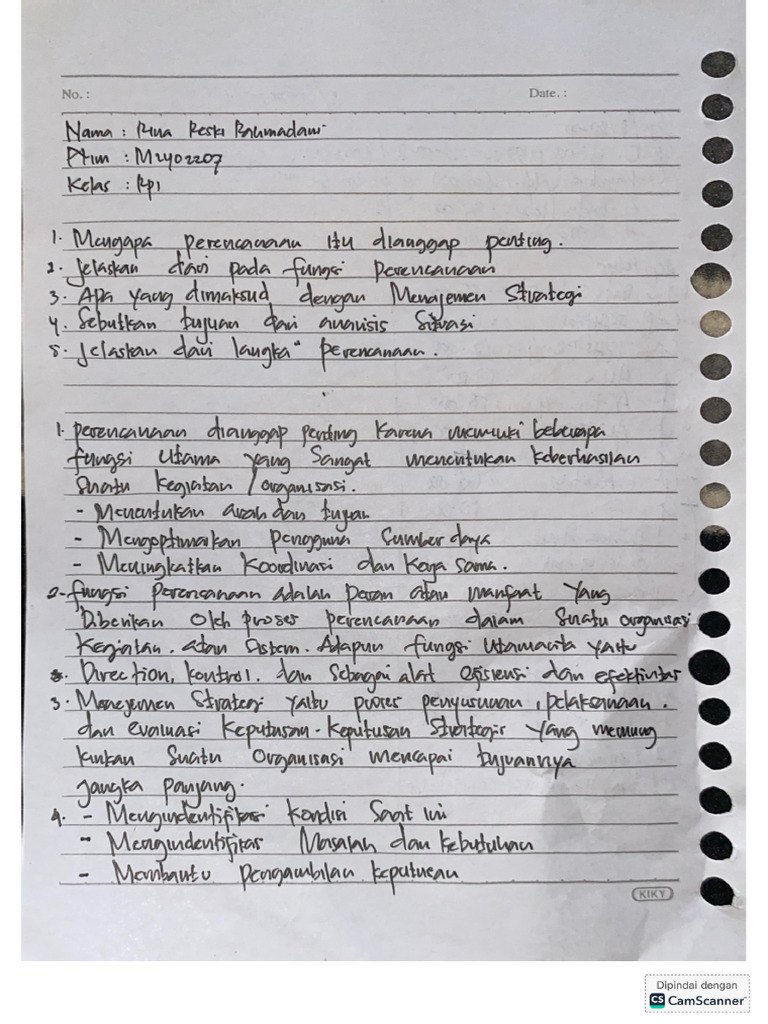 No. :
Date. :
Nama : Rina Reski Rahmadani
: M2402207
Kelas : Rp1
1. Mengapa perencanaan itu dianggap penting.
2. Jelaskan dari pada fungsi perencanaan
3. Apa yang dimaksud dengan Menajemen Strategi
4. Sebutkan tujuan dari analisis Situasi
5. Jelaskan dari langka" perencanaan.
1. perencanaan dianggap penting karena memiliki beberapa
fungsi utama yang Sangat menentukan keberhasilan
Suatu kegiatan / organisasi.
- Menentukan arah dan tujuan
- Mengoptimalkan pengguna Sumber daya
- Meningkatkan koordinasi dan kerja sama.
2. fungsi perencanaan adalah peran atau manfaat yang
Diberikan Oleh proses perencanaan dalam Suatu organisasi
kegiatan. atau Sistem. Adapun fungsi utamanya yaitu
Direction, kontrol. dan Sebagai alat efisiensi dan efektivitas
3. Menejemen Strategi yaitu proses penyusunan, pelaksanaan.
dan evaluasi keputusan-keputusan Strategis yang memung
kinkan Suatu Organisasi mencapai tujuannya
jangka panjang.
4. - Mengindentifikasi kondisi Saat ini
- Mengindentifikasi Masalah dan kebutuhan
- Membantu pengambilan keputusan
KIKY
Dipindai dengan
CS CamScanner